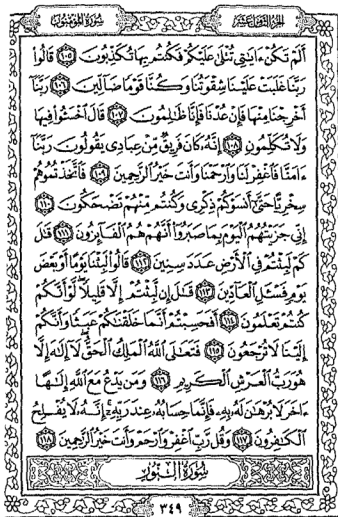 الجزء الثامن عشر
سورة المؤمنون
أَلَمْ تَكُنْ ءَايَٰتِي تُتْلَىٰ عَلَيْكُمْ فَكُنتُم بِهَا تُكَذِّبُونَ ١٠٥ قَالُوا۟
رَبَّنَا غَلَبَتْ عَلَيْنَا شِقْوَتُنَا وَكُنَّا قَوْمًا ضَآلِّينَ ١٠٦ رَبَّنَآ
أَخْرِجْنَا مِنْهَا فَإِنْ عُدْنَا فَإِنَّا ظَٰلِمُونَ ١٠٧ قَالَ ٱخْسَـُٔوا۟ فِيهَا
وَلَا تُكَلِّمُونِ ١٠٨ إِنَّهُۥ كَانَ فَرِيقٌ مِّنْ عِبَادِى يَقُولُونَ رَبَّنَآ
ءَامَنَّا فَٱغْفِرْ لَنَا وَٱرْحَمْنَا وَأَنتَ خَيْرُ ٱلرَّٰحِمِينَ ١٠٩ فَٱتَّخَذْتُمُوهُمْ
سِخْرِيًّا حَتَّىٰٓ أَنسَوْكُمْ ذِكْرِى وَكُنتُم مِّنْهُمْ تَضْحَكُونَ ١١٠
إِنِّى جَزَيْتُهُمُ ٱلْيَوْمَ بِمَا صَبَرُوٓا۟ أَنَّهُمْ هُمُ ٱلْفَآئِزُونَ ١١١ قَٰلَ
كَمْ لَبِثْتُمْ فِى ٱلْأَرْضِ عَدَدَ سِنِينَ ١١٢ قَالُوا۟ لَبِثْنَا يَوْمًا أَوْ بَعْضَ
يَوْمٍ فَسْـَٔلِ ٱلْعَآدِّينَ ١١٣ قَٰلَ إِن لَّبِثْتُمْ إِلَّا قَلِيلًا لَّوْ أَنَّكُمْ
كُنتُمْ تَعْلَمُونَ ١١٤ أَفَحَسِبْتُمْ أَنَّمَا خَلَقْنَٰكُمْ عَبَثًا وَأَنَّكُمْ
إِلَيْنَا لَا تُرْجَعُونَ ١١٥ فَتَعَٰلَى ٱللَّهُ ٱلْمَلِكُ ٱلْحَقُّ لَآ إِلَٰهَ إِلَّا
هُوَ رَبُّ ٱلْعَرْشِ ٱلْكَرِيمِ ١١٦ وَمَن يَدْعُ مَعَ ٱللَّهِ إِلَٰهًا
ءَاخَرَ لَا بُرْهَٰنَ لَهُۥ بِهِۦ فَإِنَّمَا حِسَابُهُۥ عِندَ رَبِّهِۦٓ إِنَّهُۥ لَا يُفْلِحُ
ٱلْكَٰفِرُونَ ١١٧ وَقُل رَّبِّ ٱغْفِرْ وَٱرْحَمْ وَأَنتَ خَيْرُ ٱلرَّٰحِمِينَ ١١٨
سورة النور
٣٤٩